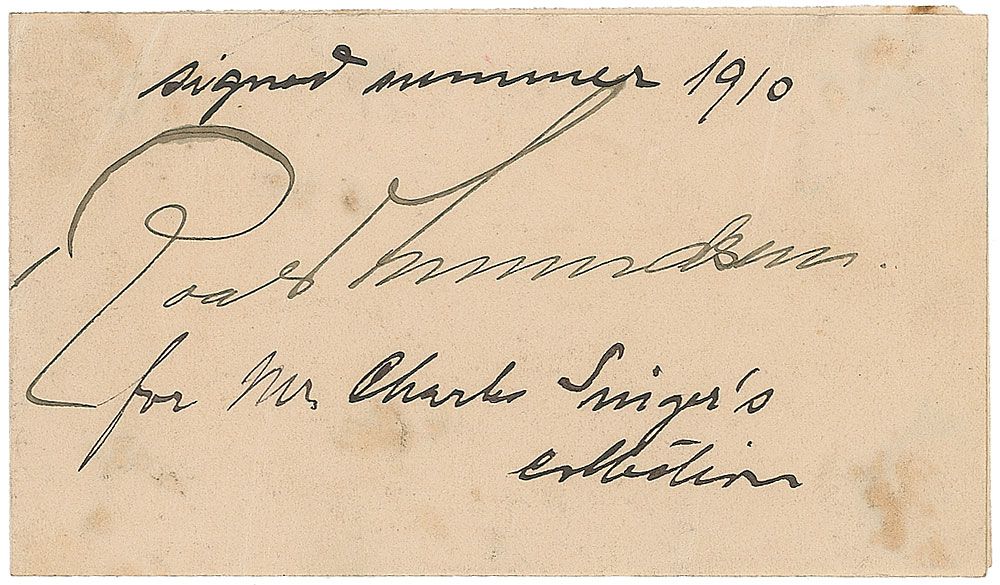 signed summer 1910
Roald Amundsen.
for Mr. Charles Singer's
collection